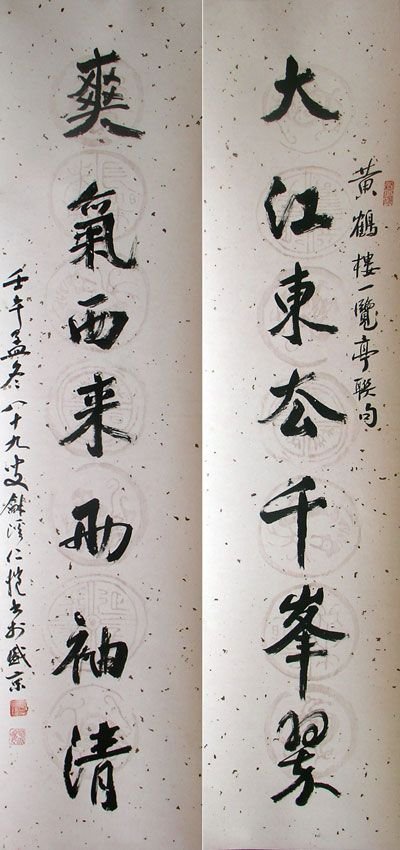 黄鶴樓一覽亭聯句
大江東去千峯翠
爽氣西来兩袖清
壬午孟冬八十九叟龢溪仁愷书於盛京